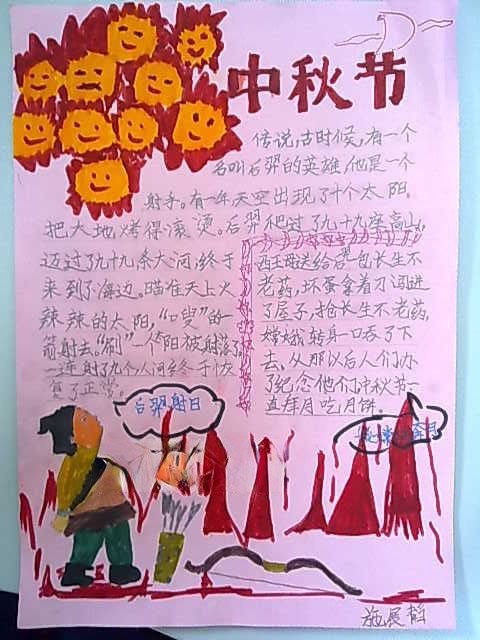 中秋节
传说古时候,有一个
名叫后羿的英雄,他是一个
射手。有一年天空出现了十个太阳,
把大地烤得滚烫。后羿爬过了九十九座高山,
迈过了九十九条大河,终于
来到了海边。瞄准天上火
辣辣的太阳,“嗖”的一
箭射去。“刷”一个阳被射落了
一连射了九个,人间终于恢
复了正常。
西王母送给后羿一包长生不
老药,坏蛋拿着刀闯进
了屋子,抢长生不老药,
嫦娥转身一口吞了下
去。从那以后人们为
了纪念他们中秋节一
直拜月吃月饼。
后羿射日
奔月
施展韬